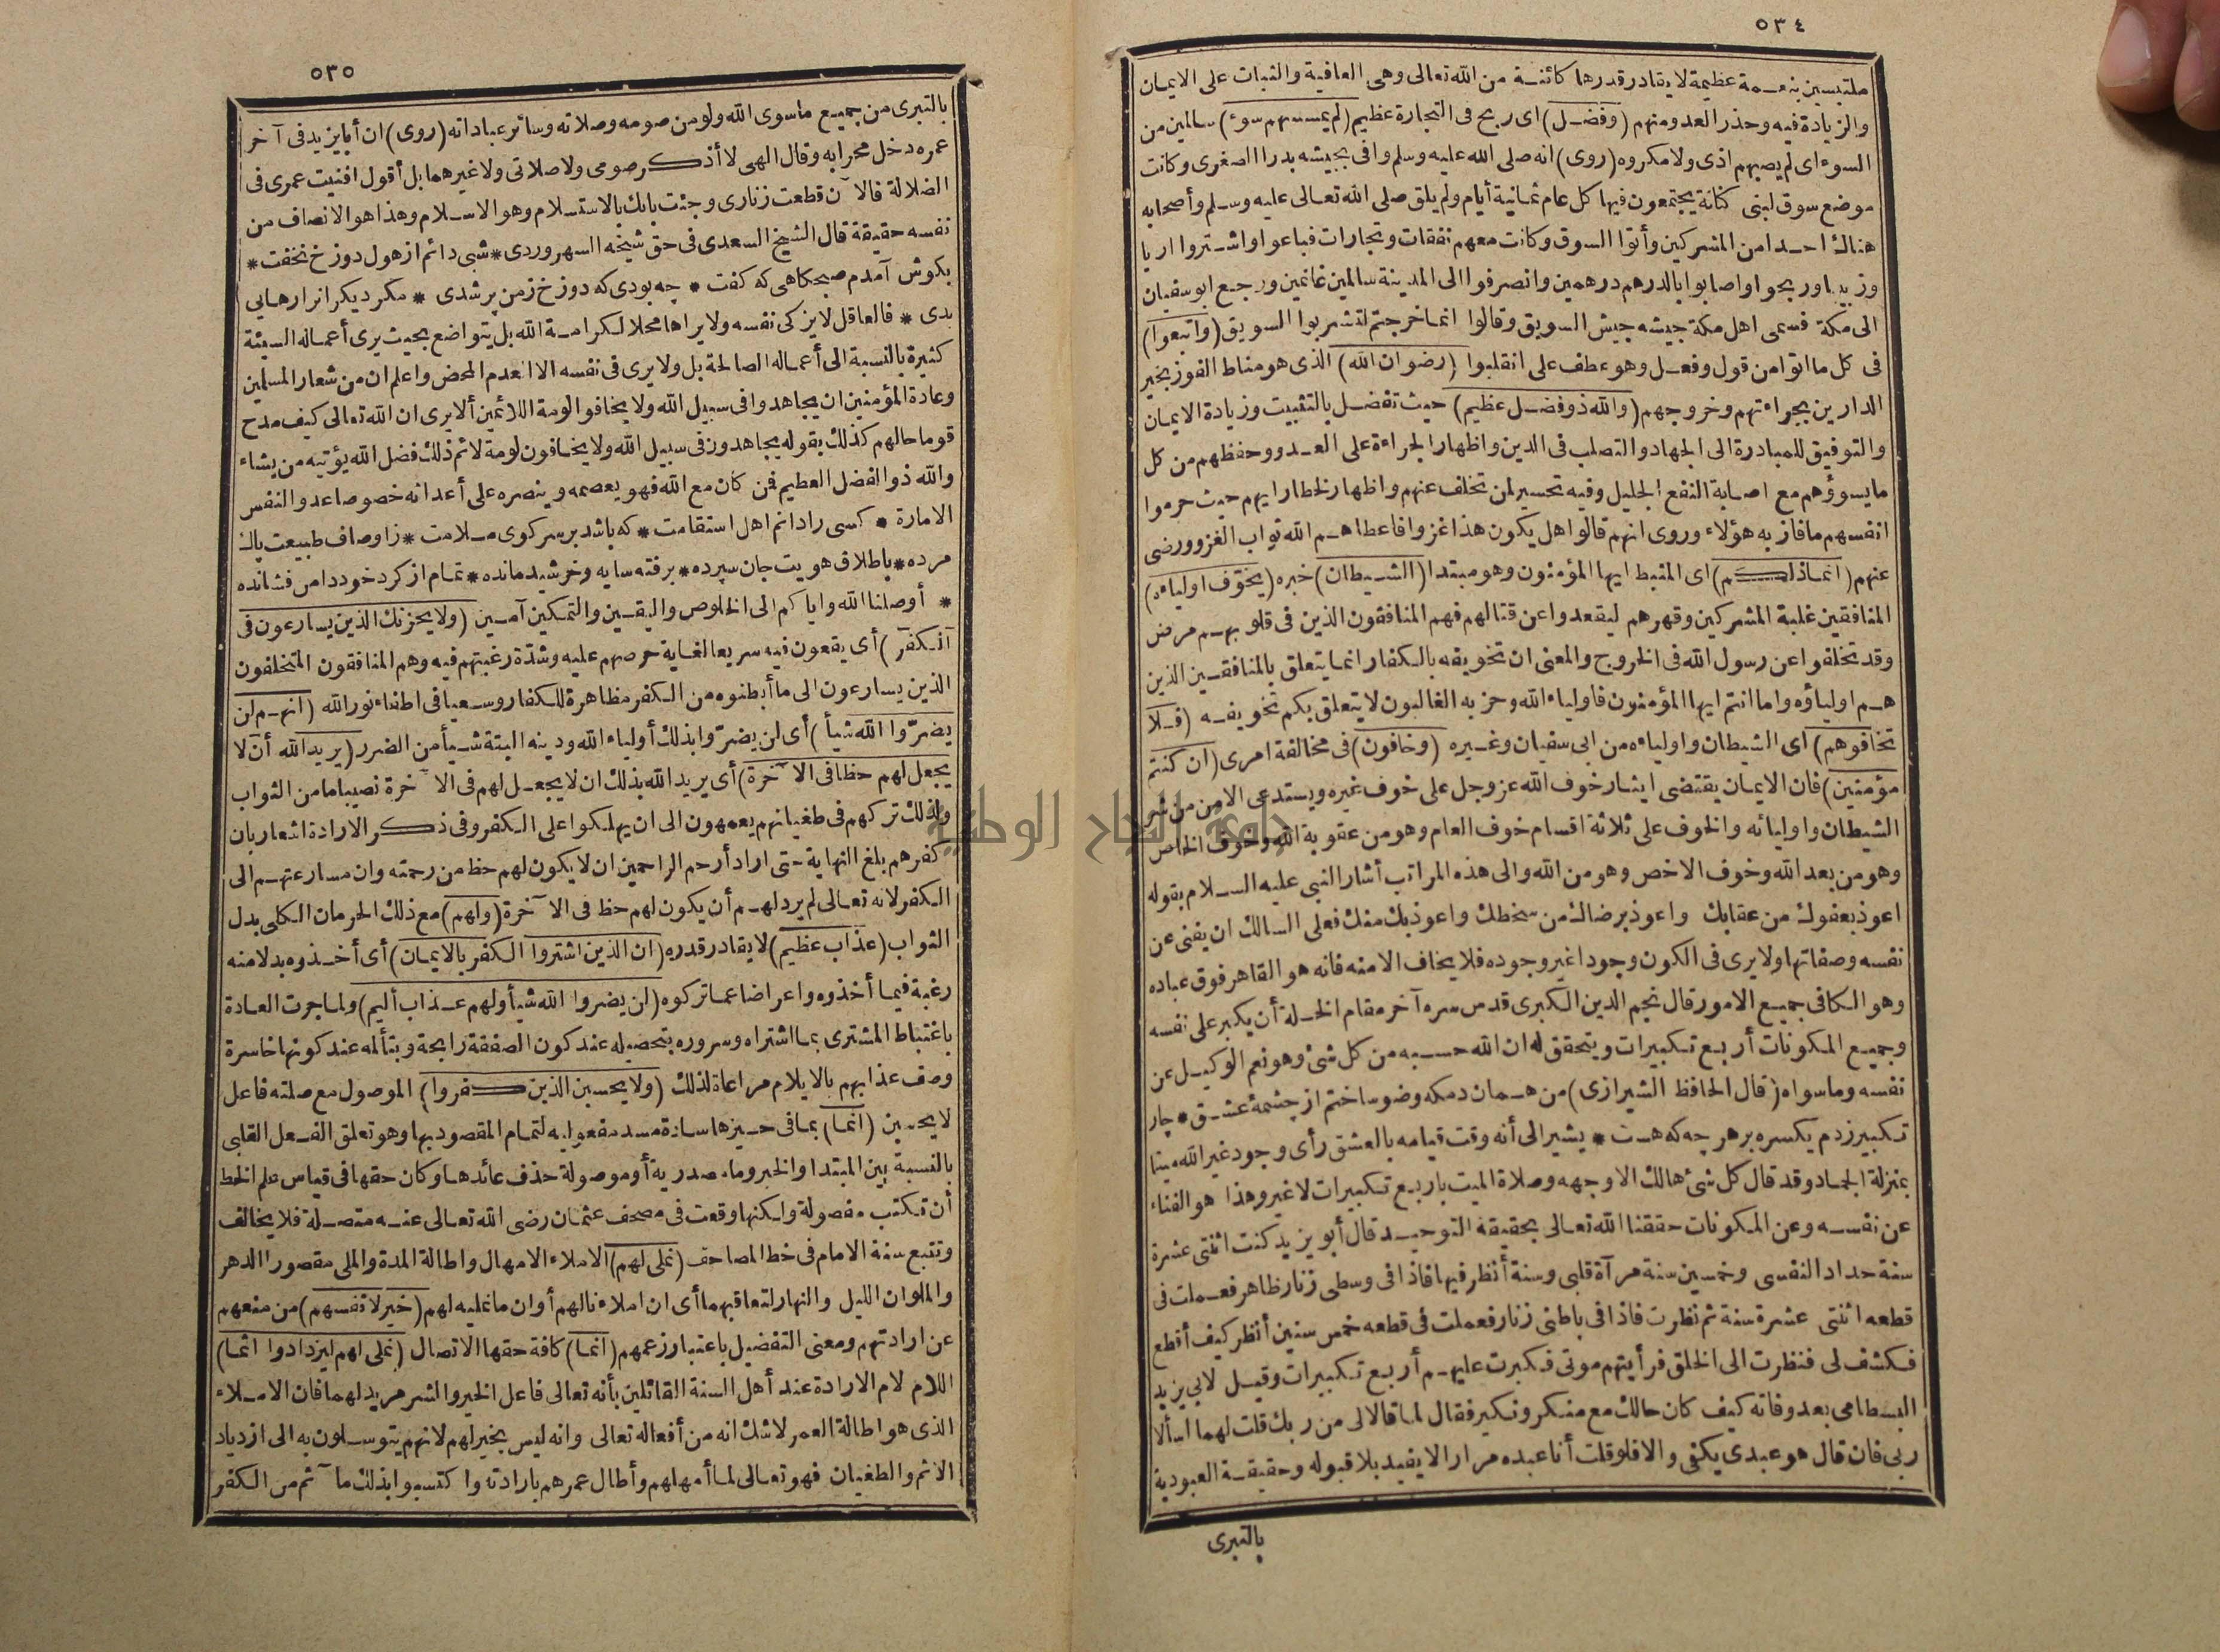 ٥٣٤
ملتبسين بنعمة عظيمة لا يقادر قدرها كائنة من الله تعالى وهى العافية والثبات على الايمان
والزيادة فيه وحذر العدو منهم (وفضل) اى ربح فى التجارة عظيم (لم يمسسهم سوء) سالمين من
السوء اى لم يصبهم اذى ولا مكروه (روى) انه صلى الله عليه وسلم وافى بجيشه بدرا الصغرى وكانت
موضع سوق لبنى كنانة يجتمعون فيها كل عام ثمانية أيام ولم يلق صلى الله تعالى عليه وسلم وأصحابه
هناك احدا من المشركين وأتوا السوق وكانت معهم نفقات وتجارات فباعوا واشتروا اريا
وزبيبا وربحوا واصابوا بالدرهم درهمين وانصرفوا الى المدينة سالمين غانمين ورجع ابو سفيان
الى مكة فسمى اهل مكة جيشه جيش السويق وقالوا انما خرجتم لتشربوا السويق (واتبعوا)
فى كل ما اتوا من قول وفعل وهو عطف على انقلبوا (رضوان الله) الذى هو مناط الفوز بخير
الدارين بجراءتهم وخروجهم (والله ذو فضل عظيم) حيث تفضل بالتثبيت وزيادة الايمان
والتوفيق للمبادرة الى الجهاد والتصلب فى الدين واظهار الجراءة على العدو وحفظهم من كل
ما يسوؤهم مع اصابة النفع الجليل وفيه تحسير لمن تخلف عنهم واظهار لخطا رايهم حيث حرموا
انفسهم ما فاز به هؤلاء وروى انهم قالوا هل يكون هذا غزوا فاعطاهم الله ثواب الغزو ورضى
عنهم (انما ذلكم) اى المثبط ايها المؤمنون وهو مبتدا (الشيطان) خبره (يخوّف اولياءه)
المنافقين غلبة المشركين وقهرهم ليقعدوا عن قتالهم فهم المنافقون الذين فى قلوبهم مرض
وقد تخلفوا عن رسول الله فى الخروج والمعنى ان تخويفه بالكفار انما يتعلق بالمنافقين الذين
هم اولياؤه واما انتم ايها المؤمنون فاولياء الله وحزبه الغالبون لا يتعلق بكم تخويفه (فلا
تخافوهم) اى الشيطان واولياءه من ابى سفيان وغيره (وخافون) فى مخالفة امرى (ان كنتم
مؤمنين) فان الايمان يقتضى ايثار خوف الله عز وجل على خوف غيره ويستدعى الامن من شر
الشيطان واوليائه والخوف على ثلاثة اقسام خوف العام وهو من عقوبة الله وخوف الخاص
وهو من بعد الله وخوف الاخص وهو من الله والى هذه المراتب أشار النبى عليه السلام بقوله
اعوذ بعفوك من عقابك واعوذ برضاك من سخطك واعوذ بك منك فعلى السالك ان يفنى عن
نفسه وصفاتها ولا يرى فى الكون وجودا غير وجوده فلا يخاف الا منه فانه هو القاهر فوق عباده
وهو الكافى جميع الامور قال نجم الدين الكبرى قدس سره آخر مقام الخلة أن يكبر على نفسه
وجميع المكونات أربع تكبيرات ويتحقق له ان الله حسبه من كل شئ وهو نعم الوكيل عن
نفسه وما سواه (قال الحافظ الشيرازى) من همان دم كه وضو ساختم از چشمۀ عشق * چار
تكبير زدم يكسره بر هر چه كه هست * يشير الى أنه وقت قيامه بالعشق رأى وجود غير الله ميتا
بمنزلة الجماد وقد قال كل شئ هالك الا وجهه وصلاة الميت باربع تكبيرات لا غير وهذا هو الفناء
عن نفسه وعن المكونات حققنا الله تعالى بحقيقة التوحيد قال أبو يزيد كنت اثنتى عشرة
سنة حداد النفسى وخمسين سنة مرآة قلبى وسنة أنظر فيها فاذا فى وسطى زنار ظاهر فعملت فى
قطعه اثنتى عشرة سنة ثم نظرت فاذا فى باطنى زنار فعملت فى قطعه خمس سنين أنظر كيف أقطع
فكشف لى فنظرت الى الخلق فرأيتهم موتى فكبرت عليهم أربع تكبيرات وقيل لابى يزيد
البسطامى بعد وفاته كيف كان حالك مع منكر ونكير فقال لما قالا لى من ربك قلت لهما اسألا
ربى فان قال هو عبدى يكفى والا فلو قلت أنا عبده مرارا لا يفيد بلا قبوله وحقيقة العبودية
بالتبرى
٥٣٥
بالتبرى من جميع ما سوى الله ولو من صومه وصلاته وسائر عباداته (روى) ان أبا يزيد فى آخر
عمره دخل محرابه وقال الهى لا أذكر صومى ولا صلاتى ولا غيرهما بل أقول افنيت عمرى فى
الضلالة فالآن قطعت زنارى وجئت بابك بالاستسلام وهو الاسلام وهذا هو الانصاف من
نفسه حقيقة قال الشيخ السعدى فى حق شيخه السهروردى * شبى دائم از هول دوزخ نخفت *
بكوش آمدم صبحكاهى كه كفت * چه بودى كه دوزخ زمن پر شدى * مكر ديكرانرا رهايى
بدى * فالعاقل لا يزكى نفسه ولا يراها محلا لكرامة الله بل يتواضع بحيث يرى أعماله السيئة
كثيرة بالنسبة الى أعماله الصالحة بل ولا يرى فى نفسه الا العدم المحض واعلم ان من شعار المسلمين
وعادة المؤمنين ان يجاهدوا فى سبيل الله ولا يخافوا لومة اللائمين ألا يرى ان الله تعالى كيف مدح
قوما حالهم كذلك بقوله يجاهدون فى سبيل الله ولا يخافون لومة لائم ذلك فضل الله يؤتيه من يشاء
والله ذو الفضل العظيم فمن كان مع الله فهو يعصمه وينصره على أعدائه خصوصا عدو النفس
الامارة * كسى را دانم اهل استقامت * كه باشد بر سر كوى ملامت * زاوصاف طبيعت پاك
مرده * باطلاق هويت جان سپرده * برفته سايه وخرشيد مانده * تمام از كرد خود دامن فشانده
* أوصلنا الله واياكم الى الخلوص واليقين والتمكين آمين (ولا يحزنك الذين يسارعون فى
الكفر) أى يقعون فيه سريعا لغاية حرصهم عليه وشدّة رغبتهم فيه وهم المنافقون المتخلفون
الذين يسارعون الى ما أبطنوه من الكفر مظاهرة للكفار وسعيا فى اطفاء نور الله (انهم لن
يضرّوا الله شيأ) أى لن يضرّوا بذلك أولياء الله ودينه البتة شيأ من الضرر (يريد الله أن لا
يجعل لهم حظا فى الآخرة) أى يريد الله بذلك ان لا يجعل لهم فى الآخرة نصيبا ما من الثواب
ولذلك تركهم فى طغيانهم يعمهون الى ان يهلكوا على الكفر وفى ذكر الارادة اشعار بان
كفرهم بلغ النهاية حتى اراد أرحم الراحمين ان لا يكون لهم حظ من رحمته وان مسارعتهم الى
الكفر لانه تعالى لم يرد لهم أن يكون لهم حظ فى الآخرة (ولهم) مع ذلك الحرمان الكلى بدل
الثواب (عذاب عظيم) لا يقادر قدره (ان الذين اشتروا الكفر بالايمان) أى أخذوه بدلا منه
رغبة فيما أخذوه واعراضا عما تركوه (لن يضروا الله شيأ ولهم عذاب أليم) ولما جرت العادة
باغتباط المشترى بما اشتراه وسروره بتحصيله عند كون الصفقة رابحة وبتألمه عند كونها خاسرة
وصف عذابهم بالايلام مراعاة لذلك (ولا يحسبن الذين كفروا) الموصول مع صلته فاعل
لا يحسبن (انما) بما فى حيزها سادة مسد مفعوليه لتمام المقصود بها وهو تعلق الفعل القلبى
بالنسبة بين المبتدا والخبر وما مصدرية أو موصولة حذف عائدها وكان حقها فى قياس علم الخط
أن تكتب مفصولة ولكنها وقعت فى مصحف عثمان رضى الله تعالى عنه متصلة فلا يخالف
وتتبع سنة الامام فى خط المصاحف (نملى لهم) الاملاء الامهال واطالة المدة والملى مقصورا الدهر
والملوان الليل والنهار لتعاقبهما أى ان املاءنا لهم أو ان ما نمليه لهم (خير لانفسهم) من منعهم
عن ارادتهم ومعنى التفضيل باعتبار زعمهم (انما) كافة حقها الاتصال (نملى لهم ليزدادوا اثما)
اللام لام الارادة عند أهل السنة القائلين بأنه تعالى فاعل الخير والشر مريد لهما فان الاملاء
الذى هو اطالة العمر لا شك انه من أفعاله تعالى وانه ليس بخير لهم لانهم يتوسلون به الى ازدياد
الاثم والطغيان فهو تعالى لما أمهلهم وأطال عمرهم بارادته واكتسبوا بذلك مآثم من الكفر
جامعة النجاح الوطنية